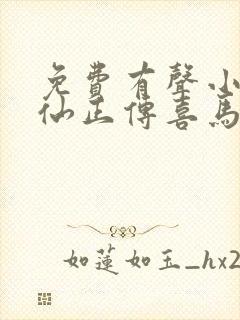 免費有聲小
仙正傳喜馬
如蓮如玉_hx2